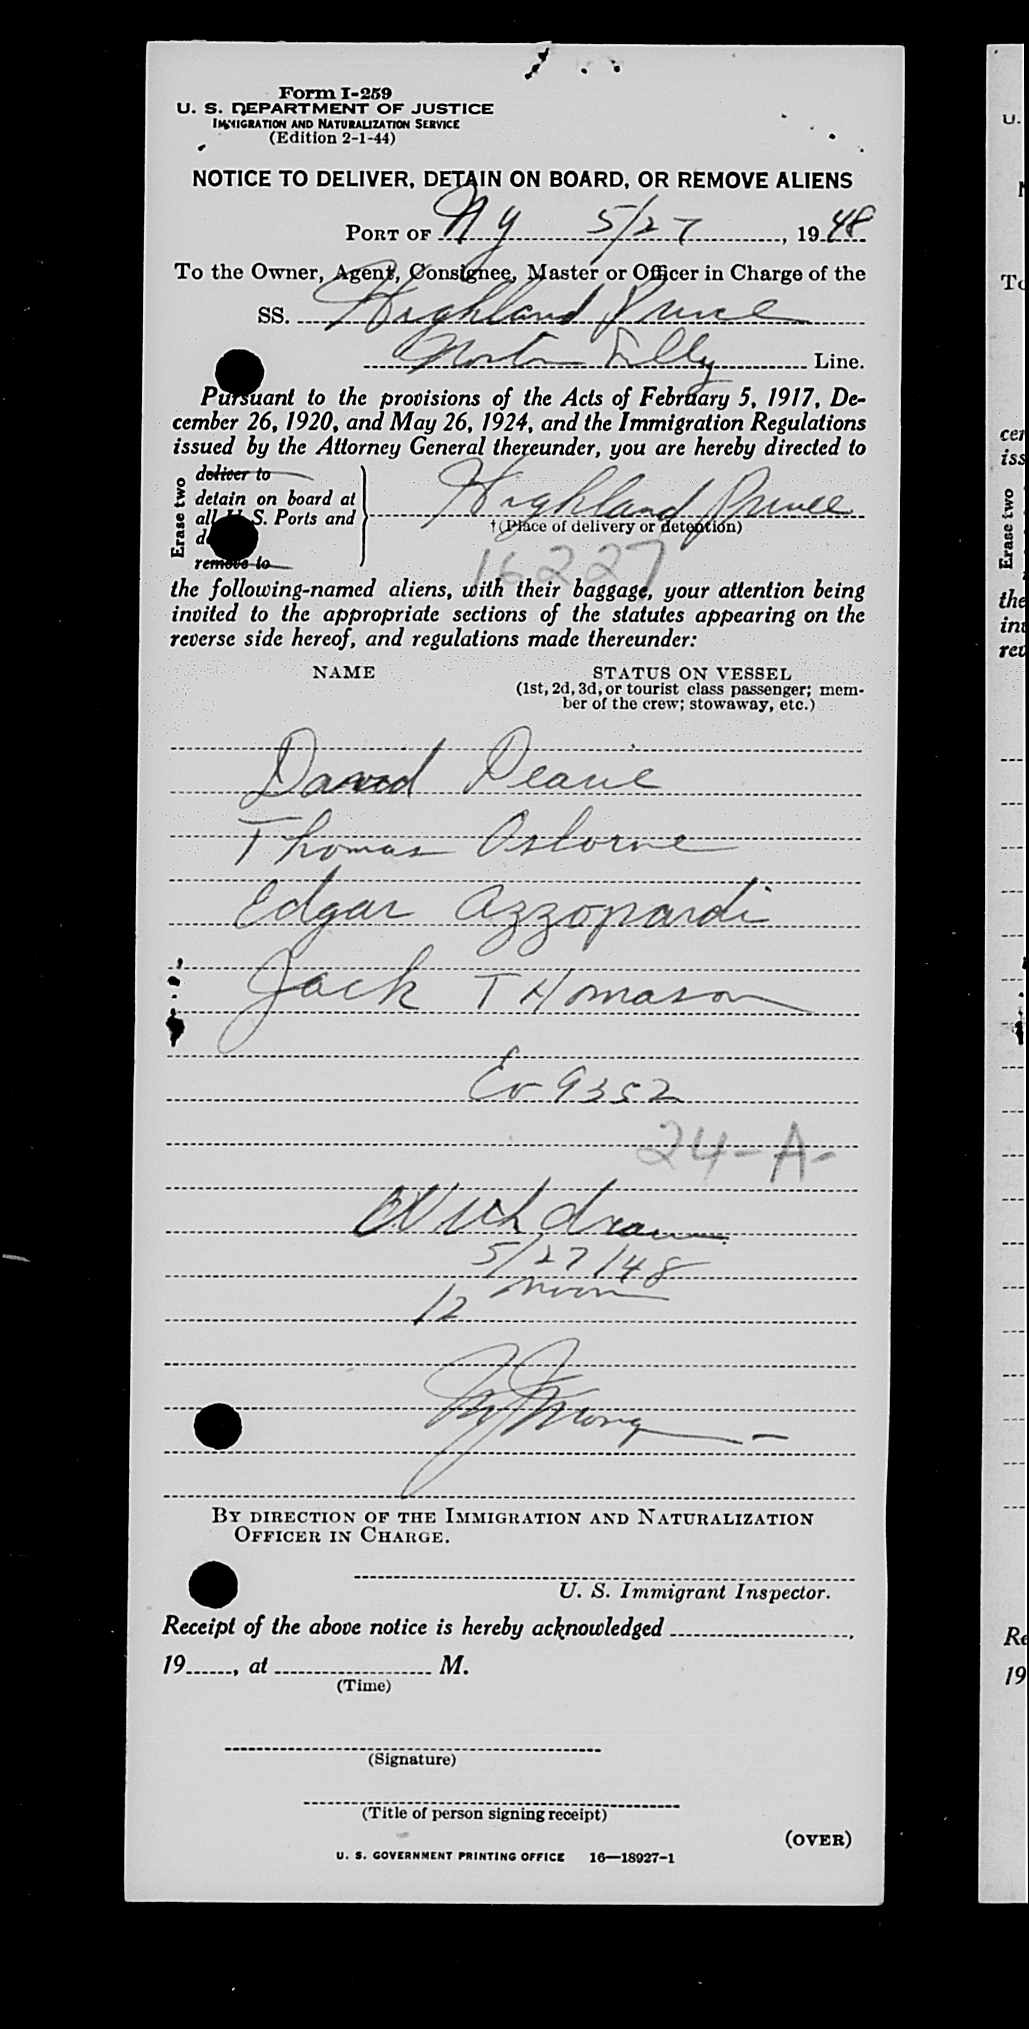 Form I-259
U. S. DEPARTMENT OF JUSTICE
IMMIGRATION AND NATURALIZATION SERVICE
(Edition 2-1-44)
NOTICE TO DELIVER, DETAIN ON BOARD, OR REMOVE ALIENS
PORT OF N Y 5/27, 1948
To the Owner, Agent, Consignee, Master or Officer in Charge of the
SS. Highland Prince
Norton Lilly Line.
Pursuant to the provisions of the Acts of February 5, 1917, De-
cember 26, 1920, and May 26, 1924, and the Immigration Regulations
issued by the Attorney General thereunder, you are hereby directed to
Erase two
deliver to
detain on board at
all U. S. Ports and
remove to
Highland Prince
†(Place of delivery or detention)
16227
the following-named aliens, with their baggage, your attention being
invited to the appropriate sections of the statutes appearing on the
reverse side hereof, and regulations made thereunder:
NAME STATUS ON VESSEL
(1st, 2d, 3d, or tourist class passenger; mem-
ber of the crew; stowaway, etc.)
David
Thomas Osborne
Edgar Azzopardi
Jack THomason
9352
24-A-
Withdrawn
5/27/48
12 noon
BY DIRECTION OF THE IMMIGRATION AND NATURALIZATION
OFFICER IN CHARGE.
U. S. Immigrant Inspector.
Receipt of the above notice is hereby acknowledged ,
19 , at M.
(Time)
(Signature)
(Title of person signing receipt)
(OVER)
U. S. GOVERNMENT PRINTING OFFICE 16—18927-1